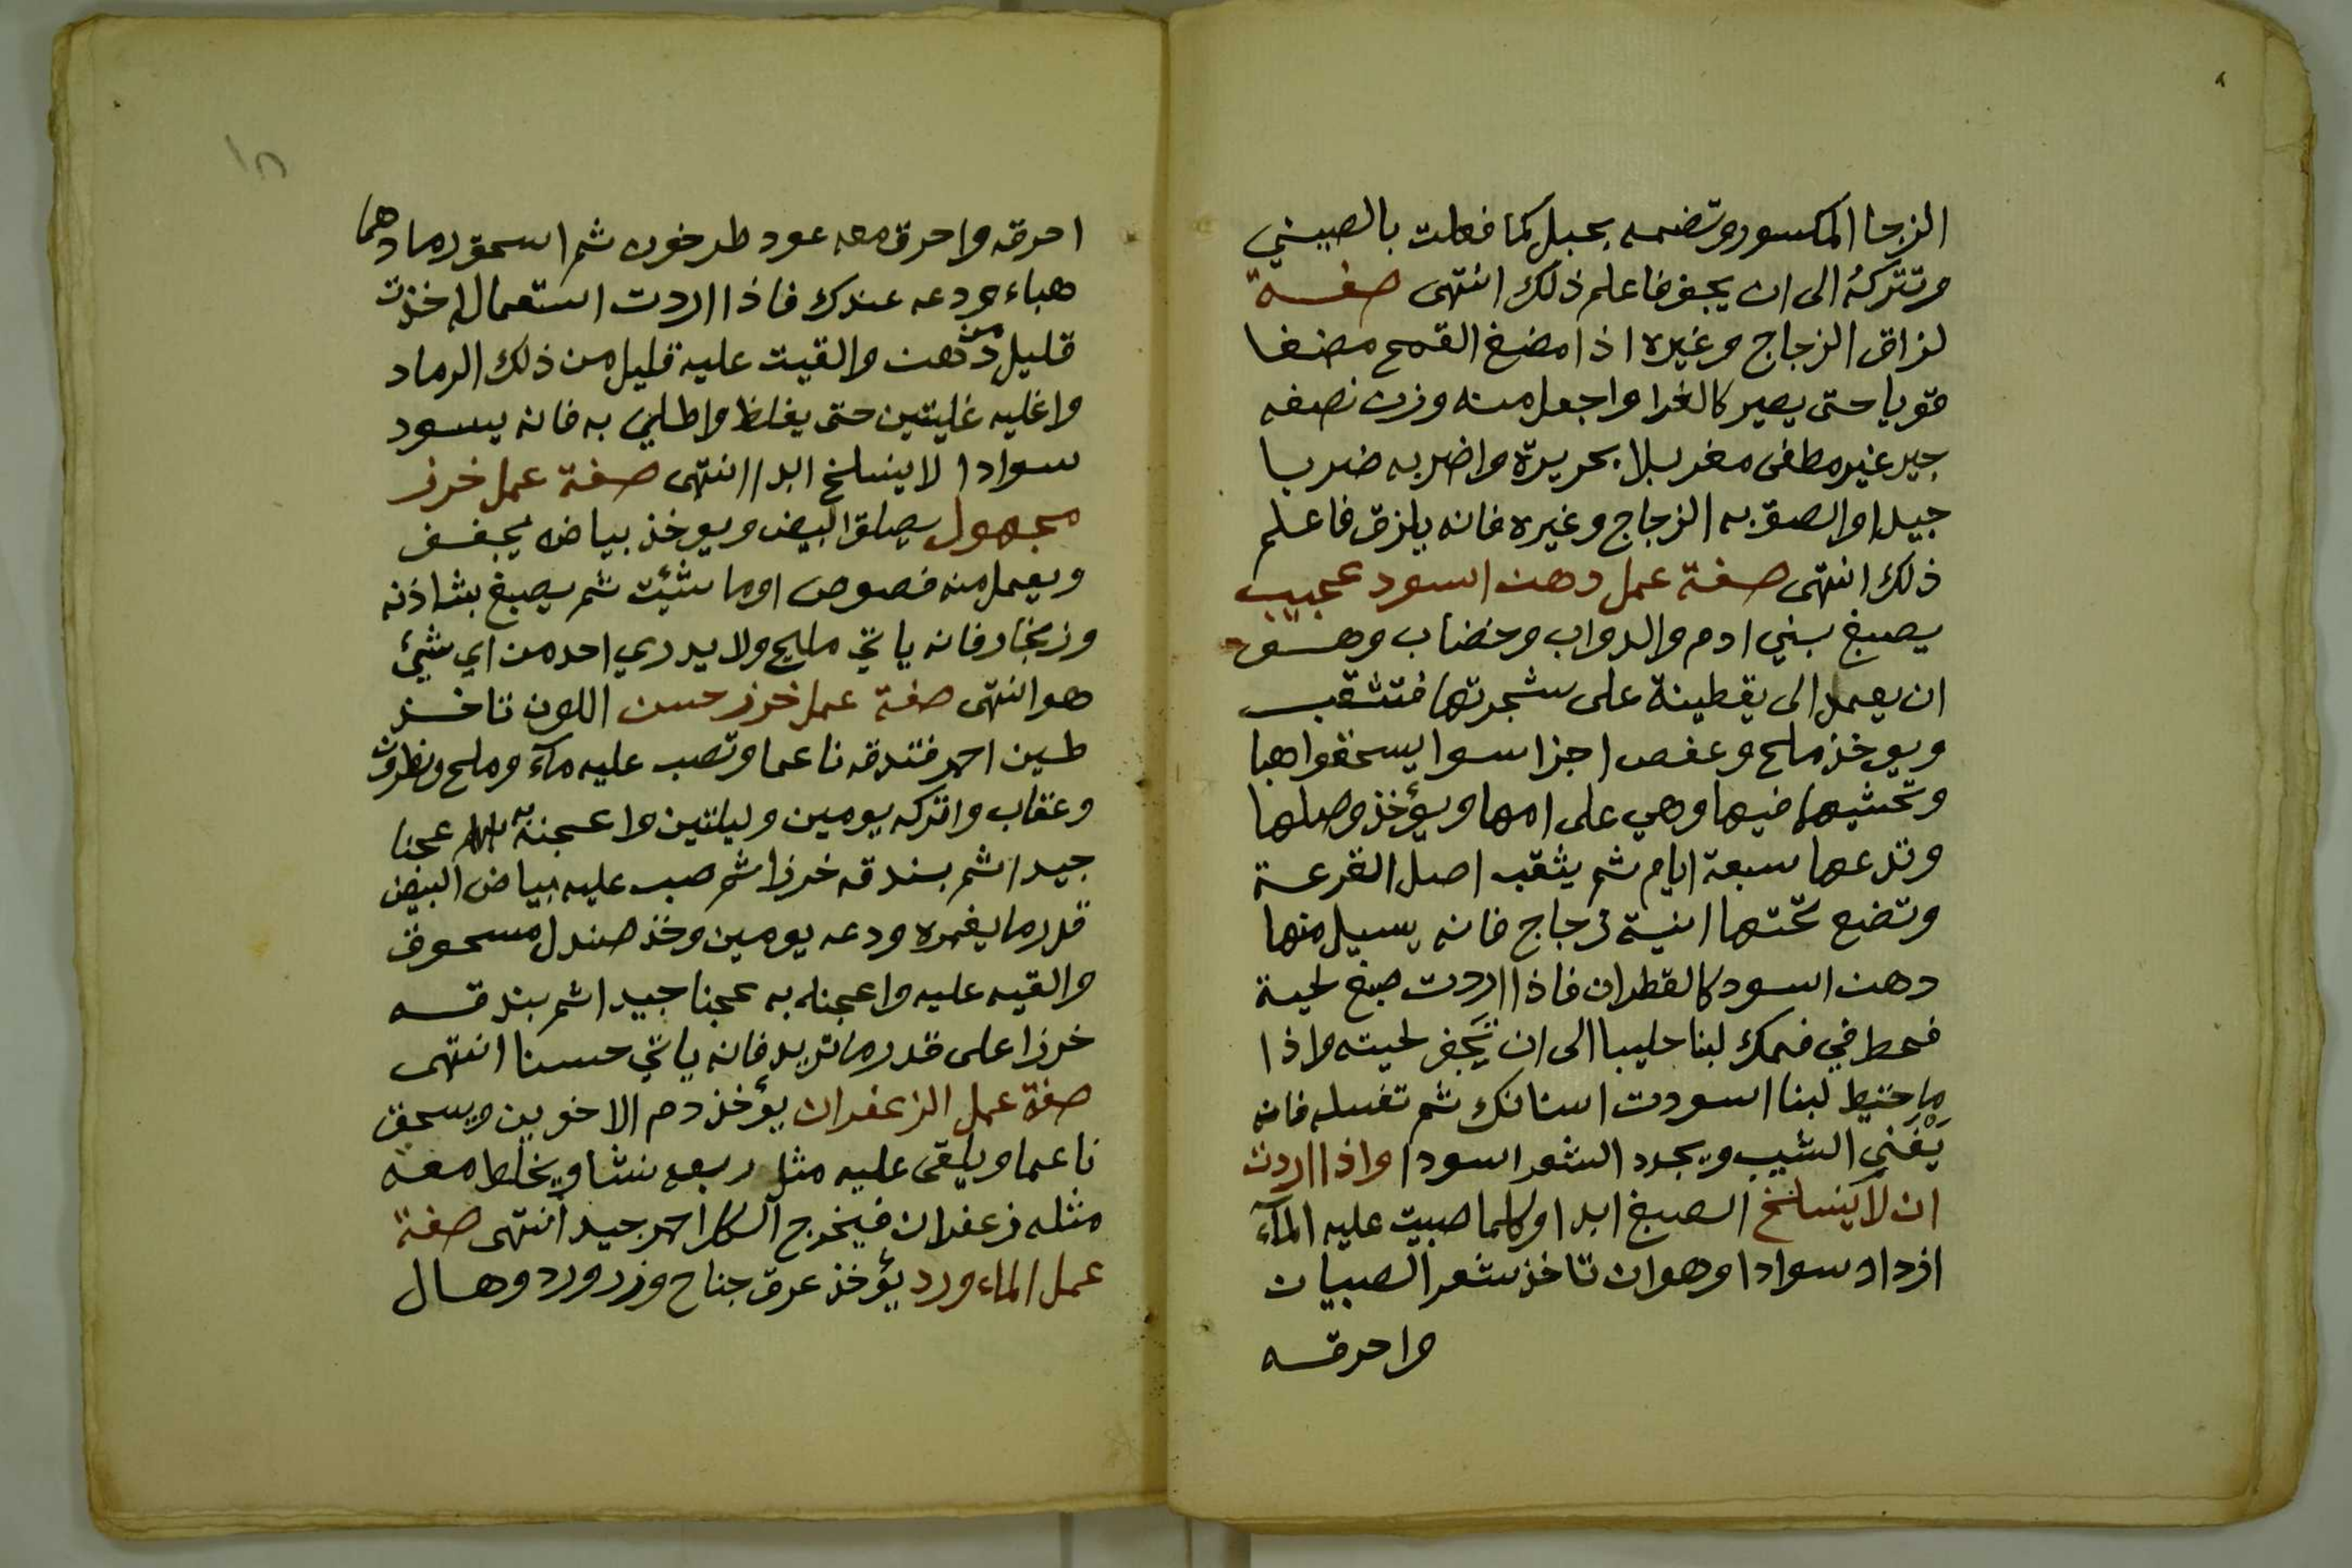 الزجا المكسور وتضمه بحبل كما فعلت بالصيني
وتتركه الى ان يجف فاعلم ذلك انتهى صفة
لزاق الزجاج وغيره اذا مضغ القمح مضغا
قويا حتى يصير كالغرا واجعل منه وزن نصفه
جير غير مطفى مغربلا بحريرة واضربه ضربا
جيدا والصق به الزجاج وغيره فانه يلزق فاعلم
ذلك انتهى صفة عمل دهن اسود عجيب
يصبغ بني ادم والدواب وخضاب وهو
ان يعمد الى يقطينة على شجرتها فتثقب
ويوخذ ملح وعفص اجزا سوا يسحقوا هبا
وتحشيها فيها وهي على امها ويؤخذ وصلها
وتدعها سبعة ايام ثم يثقب اصل القرعة
وتضع تحتها انية زجاج فانه يسيل منها
دهن اسود كالقطران فاذا اردت صبغ لحية
فحط في فمك لبنا حليبا الى ان تجف لحيته واذا
ما حتيط لبنا اسودت اسنانك ثم تغسله فانه
يفني الشيب ويجدد الشعر اسودا واذا اردت
ان لا ينسلخ الصبغ ابدا وكلما صبيت عليه المآء
ازداد سوادا وهو ان تاخذ شعر الصبيان
واحرقه
١٨
احرقه واحرق معه عود طرخون ثم اسحق رمادهما
هباء ودعه عندك فاذا اردت استعماله اخذت
قليل من دهن والقيت عليه قليل من ذلك الرماد
واغليه غليتين حتى يغلظ واطلي به فانه يسود
سوادا لا ينسلخ ابدا انتهى صفة عمل خرز
مجهول يصلق البيض ويوخذ بياضه يجفف
ويعمل منه فصوص اوما شئيت ثم يصبغ بشاذنه
وزنجار فانه ياتي مليح ولا يدري احد من اي شيئ
هو انتهى صفة عمل خرز حسن اللون تاخذ
طين احمر فتدقه ناعما وتصب عليه مآء وملح ونطرون
وعقاب واتركه يومين وليلتين واعجنه به عجنا
جيدا ثم بندقه خرزا ثم صب عليه بياض البيض
قدر ما يغمره ودعه يومين وخذ صندل مسحوق
والقيه عليه واعجنه به عجنا جيدا ثم بندقه
خرزا على قدر ما تريد فانه ياتي حسنا انتهى
صفة عمل الزعفران يؤخذ دم الاخوين ويسحق
ناعما ويلقى عليه مثل ربعه نشا ويخلط معه
مثله زعفران فيخرج الكل احمر جيد انتهى صفة
عمل الماء ورد يؤخذ عرق جناح وزر ورد وهال